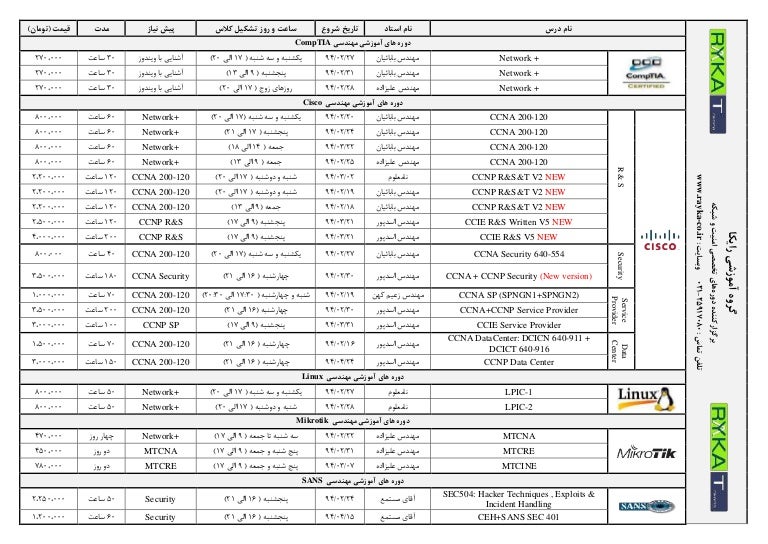 نام درس نام استاد تاریخ شروع ساعت و روز تشکیل کلاس پیش نیاز مدت قیمت (تومان)
دوره های آموزشی مهندسی CompTIA
Network + مهندس بابائیان ۹۴/۰۲/۲۷ یکشنبه و سه شنبه (۱۷ الی ۲۰) آشنایی با ویندوز ۳۰ ساعت ۲۷۰.۰۰۰
Network + مهندس بابائیان ۹۴/۰۲/۳۱ پنجشنبه (۹ الی ۱۳) آشنایی با ویندوز ۳۰ ساعت ۲۷۰.۰۰۰
Network + مهندس علیزاده ۹۴/۰۲/۲۸ روزهای زوج (۱۷ الی ۲۰) آشنایی با ویندوز ۳۰ ساعت ۲۷۰.۰۰۰
CompTIA
CERTIFIED
دوره های آموزشی مهندسی Cisco
R & S
CCNA 200-120 مهندس بابائیان ۹۴/۰۲/۲۰ یکشنبه و سه شنبه (۱۷ الی ۲۰) Network+ ۶۰ ساعت ۸۰۰.۰۰۰
CCNA 200-120 مهندس بابائیان ۹۴/۰۲/۲۴ پنجشنبه (۱۷ الی ۲۱) Network+ ۶۰ ساعت ۸۰۰.۰۰۰
CCNA 200-120 مهندس بابائیان ۹۴/۰۳/۲۲ جمعه (۱۴ الی ۱۸) Network+ ۶۰ ساعت ۸۰۰.۰۰۰
CCNA 200-120 مهندس علیزاده ۹۴/۰۲/۲۵ جمعه (۹ الی ۱۳) Network+ ۶۰ ساعت ۸۰۰.۰۰۰
CCNP R&S&T V2 NEW نامعلوم ۹۴/۰۳/۰۲ شنبه و دوشنبه (۱۷ الی ۲۰) CCNA 200-120 ۱۲۰ ساعت ۲.۲۰۰.۰۰۰
CCNP R&S&T V2 NEW مهندس بابائیان ۹۴/۰۲/۱۹ شنبه و دوشنبه (۱۷ الی ۲۰) CCNA 200-120 ۱۲۰ ساعت ۲.۲۰۰.۰۰۰
CCNP R&S&T V2 NEW مهندس بابائیان ۹۴/۰۲/۱۸ جمعه (۹ الی ۱۳) CCNA 200-120 ۱۲۰ ساعت ۲.۲۰۰.۰۰۰
CCIE R&S Written V5 NEW مهندس اسدپور ۹۴/۰۳/۲۱ پنجشنبه (۹ الی ۱۷) CCNP R&S ۱۲۰ ساعت ۲.۵۰۰.۰۰۰
CCIE R&S V5 NEW مهندس اسدپور ۹۴/۰۳/۲۱ پنجشنبه (۹ الی ۱۷) CCNP R&S ۲۰۰ ساعت ۴.۰۰۰.۰۰۰
CISCO
Security
CCNA Security 640-554 مهندس بابائیان ۹۴/۰۲/۲۷ یکشنبه و سه شنبه (۱۷ الی ۲۰) CCNA 200-120 ۴۰ ساعت ۸۰۰.۰۰۰
CCNA + CCNP Security (New version) مهندس اسدپور ۹۴/۰۲/۳۰ چهارشنبه (۱۶ الی ۲۱) CCNA Security ۱۸۰ ساعت ۳.۵۰۰.۰۰۰
Service Provider
CCNA SP (SPNGN1+SPNGN2) مهندس زعیم کهن ۹۴/۰۲/۱۹ شنبه و چهارشنبه (۱۷:۳۰ الی ۲۰:۳۰) CCNA 200-120 ۷۰ ساعت ۱.۰۰۰.۰۰۰
CCNA+CCNP Service Provider مهندس اسدپور ۹۴/۰۲/۳۰ چهارشنبه (۱۶ الی ۲۱) CCNA 200-120 ۲۰۰ ساعت ۳.۵۰۰.۰۰۰
CCIE Service Provider مهندس اسدپور ۹۴/۰۳/۳۱ پنجشنبه (۹ الی ۱۷) CCNP SP ۱۰۰ ساعت ۳.۰۰۰.۰۰۰
Data Center
CCNA DataCenter: DCICN 640-911 + DCICT 640-916 مهندس اسدپور ۹۴/۰۲/۱۶ چهارشنبه (۱۶ الی ۲۱) CCNA 200-120 ۷۰ ساعت ۱.۵۰۰.۰۰۰
CCNP Data Center مهندس اسدپور ۹۴/۰۴/۲۴ چهارشنبه (۱۶ الی ۲۱) CCNA 200-120 ۱۵۰ ساعت ۳.۰۰۰.۰۰۰
دوره های آموزشی مهندسی Linux
LPIC-1 نامعلوم ۹۴/۰۲/۲۷ یکشنبه و سه شنبه (۱۷ الی ۲۰) Network+ ۵۰ ساعت ۸۰۰.۰۰۰
LPIC-2 نامعلوم ۹۴/۰۲/۲۸ شنبه و دوشنبه (۱۷ الی ۲۰) Network+ ۵۰ ساعت ۸۰۰.۰۰۰
Linux
دوره های آموزشی مهندسی Mikrotik
MTCNA مهندس علیزاده ۹۴/۰۲/۲۲ سه شنبه تا جمعه (۹ الی ۱۷) Network+ چهار روز ۴۷۰.۰۰۰
MTCRE مهندس علیزاده ۹۴/۰۲/۳۱ پنج شنبه و جمعه (۹ الی ۱۷) MTCNA دو روز ۴۵۰.۰۰۰
MTCINE مهندس علیزاده ۹۴/۰۳/۰۷ پنج شنبه و جمعه (۹ الی ۱۷) MTCRE دو روز ۷۸۰.۰۰۰
MikroTik
دوره های آموزشی مهندسی SANS
SEC504: Hacker Techniques , Exploits & Incident Handling آقای مستمع ۹۴/۰۲/۲۴ پنجشنبه (۱۶ الی ۲۱) Security ۵۰ ساعت ۲.۲۵۰.۰۰۰
CEH+SANS SEC 401 آقای مستمع ۹۴/۰۴/۱۵ پنجشنبه (۱۶ الی ۲۱) Security ۶۰ ساعت ۱.۲۰۰.۰۰۰
SANS
RYKA
گروه آموزشی رایکا
برگزارکننده دوره‌های تخصصی امنیت و شبکه
تلفن تماس : ۰۲۱-۲۵۹۱۷۰۸۰ وبسایت : www.rayka-co.ir
RYKA